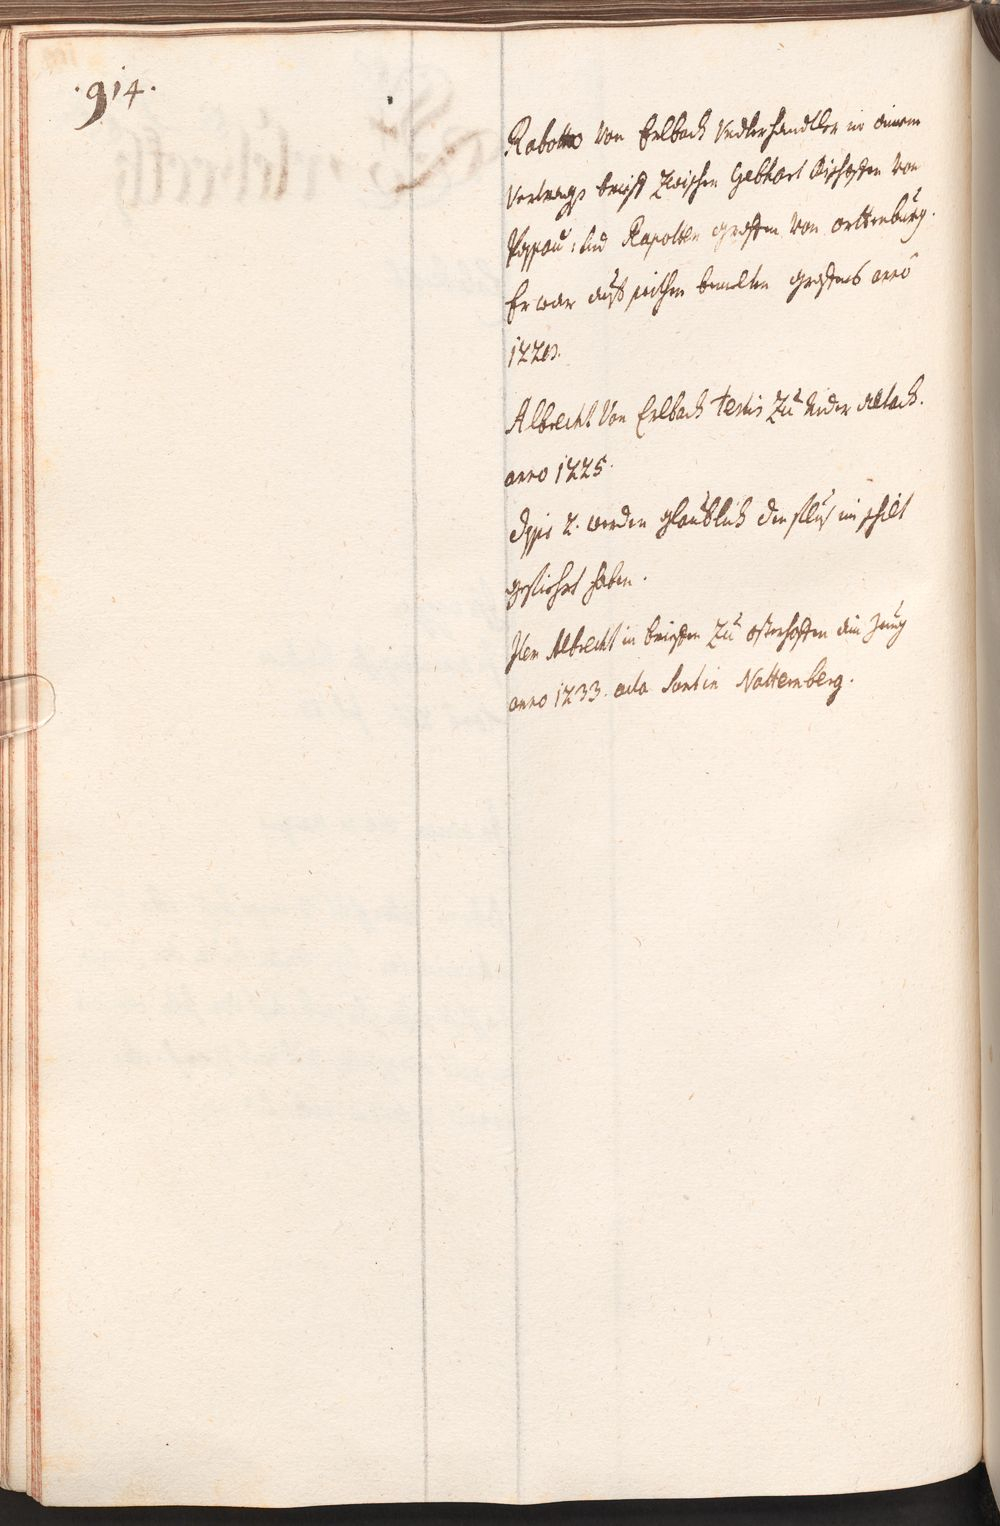 .914.
Rabotto von Erlbach Undterhandtler in ainem
Vertrags brieff zwischen Gebhart Bischoffen von
Passau, und Rapotten graffen von orttenburg.
Er war auff seithen bemelten graffens anno
1220.
Albrecht von Erlbach testis zu Nider altach.
anno 1225.
Dise 2. werden glaublich den flug im schilt
gefiehrt haben.
Item Albrecht in brieffen zu osterhoffen ain Zeug
anno 1233. acta sunt in Natternberg.